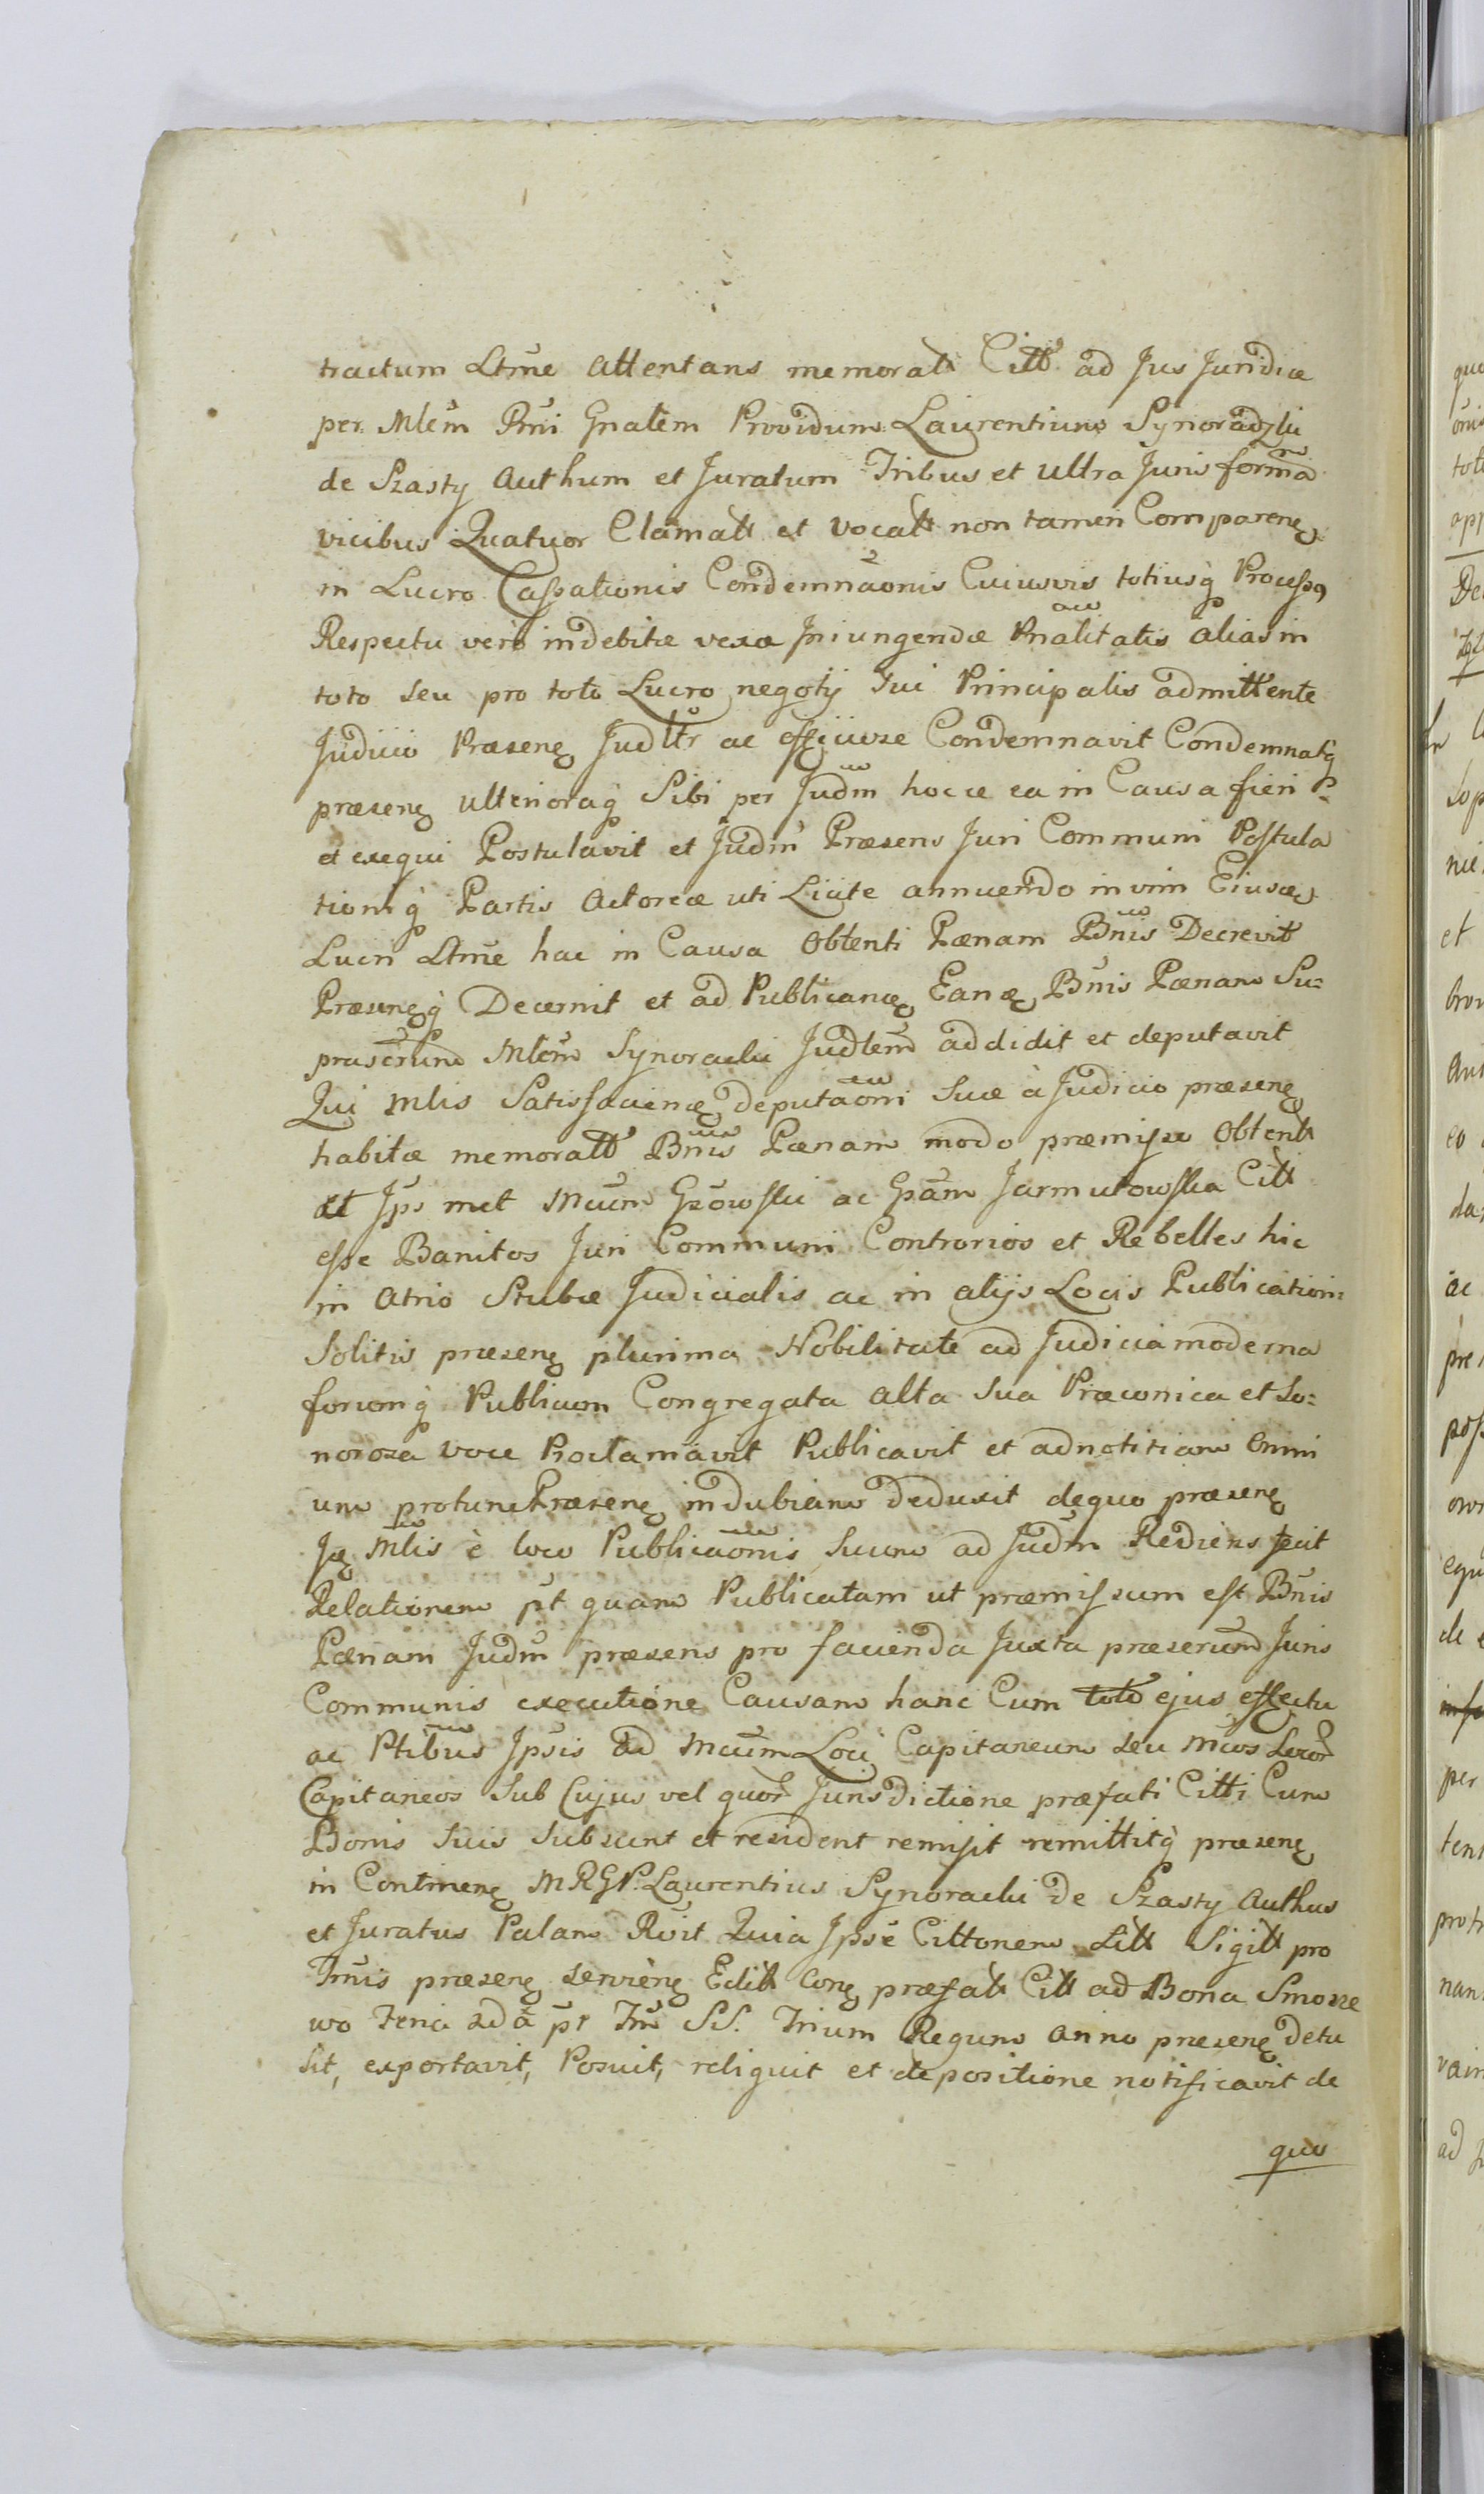 tractum Ltme attentans memoratt Citt ad Jus Juridice
per Mlem Rni Gnalem Providum Laurentium Synoradzki
de Szasty Authum et Juratum Tribus et ultra Juris forma
vicibus Quatuor Clamatt et vocatt non tamen Comparen
in Lucro Cassationis Condemnaonis Cuiusvis totiusq Processus
Respectu vero indebitæ vexæ Iniungendæ Pnalitatis alias in
toto seu pro toto Lucro negotij sui Principalis admittente
Judicio Præsen Judltr ac officiose Condemnavit Condemnatq
præsen ulterioraq Sibi per Judm hocce ea in Causa fieri
et exequi Postulavit et Judm Præsens Juri Communi Postula
tioniq Partis Actoreæ uti Licite annuendo in vim Eiusd
Lucri Ltme hac in Causa Obtenti Pænam Bnis Decrevit
Præsenq Decernit et ad Publicand Eand Bnis Pænam Su=
prascriptum Mlem Synoracki Judlem addidit et deputavit
Qui Mlis Satisfaciend deputaoni Suæ à Judicio præsen
habitæ memoratt Bnis Pænam modo præmisso Obtent
et Ips met Mcum Gzowski ac Gsam Jarmutowska Citt
esse Banitos Juri Communi Contrarios et Rebelles hic
in Atrio Stubæ Judicialis ac in alijs Locis Publicationi
Solitis præsen plurima Nobilitate ad Judicia moderna
forumq Publicum Congregata alta sua Præconica et So=
norosa voce Proclamavit Publicavit et ad notitiam Omni
um protunc Præsen indubiam deduxit dequo præsen
Id Mlis è loco Publicaonis Suum ad Judm Rediens fecit
Relationem pt quam Publicatam ut præmissum est Bnis
Pænam Judm præsens pro facienda Juxta præscriptum Juris
Communis executione Causam hanc Cum toto ejus effectu
ac Ptibus Ipsis ad Mcum Loci Capitaneum seu Mcos Locor
Capitaneos Sub Cujus vel quor Jurisdictione præfati Citti Cum
Bonis Suis Subsunt et resident remisit remittitq præsen
in Continen MRGP. Laurentius Synoracki de Szasty Authus
et Juratus Palam Rvit Quia Ipse Cittonem Litt Sigill pro
Tmis præsen servien Edit Con præfatt Citt ad Bona Smosze
wo Feria 2dâ pt Fm SS. Trium Regum anno præsen detu
lit, exportavit, Posuit, reliquit et depositione notificavit de
quo